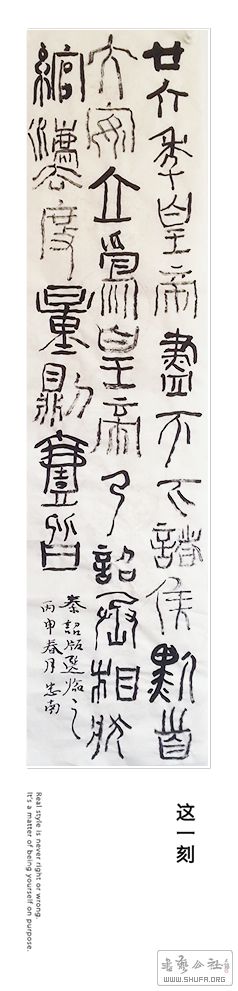 廿六年皇帝盡天下諸侯黔首
大安立爲皇帝乃詔丞相狀
綰灋度量則壹皆
秦詔版選臨之
丙申春月忠南
这一刻
Real style is never right or wrong.
It's a matter of being yourself on purpose.
书艺公社
WWW.SHUFA.ORG